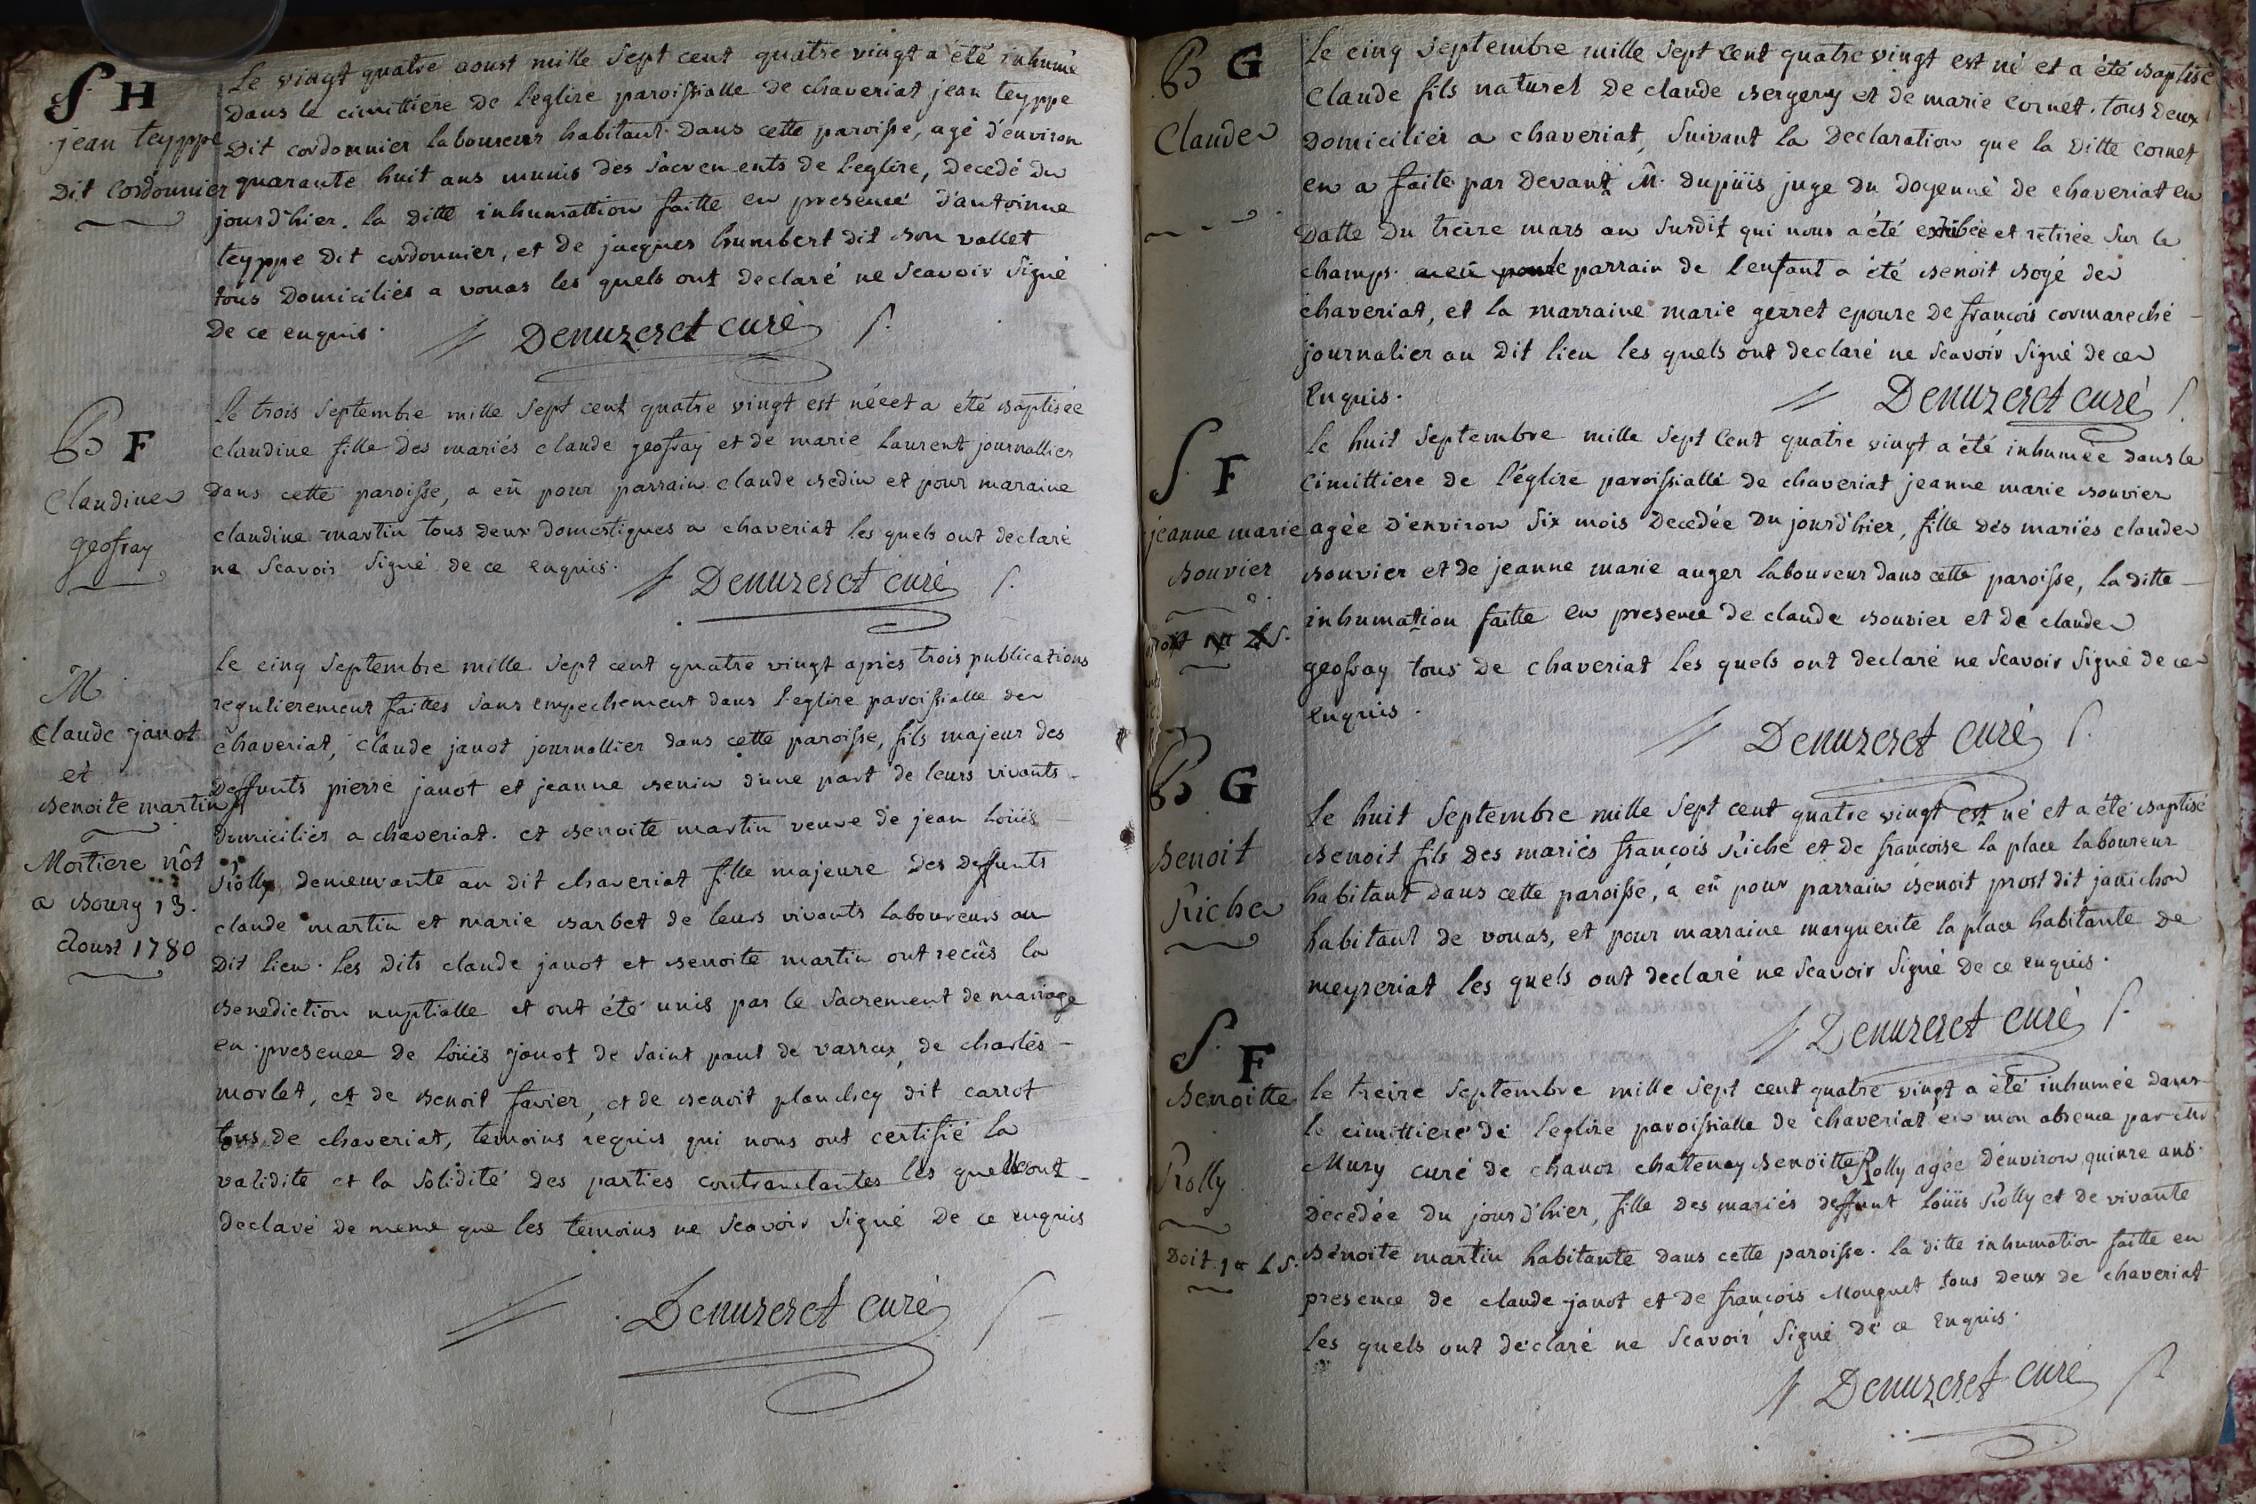 S. H
jean teyppe
dit Cordonnier
Le vingt quatre aoust mille Sept cent quatre vingt a été inhumé
dans le cimittiere de l'eglise paroissialle de chaveriat jean teyppe
dit cordonnier laboureur habitant dans cette paroisse, agé d'environ
quarante huit ans munis des Sacrements de l'eglise, decedé du
jourd'hier. la ditte inhumattion faitte en presence d'antoinne
teyppe dit cordonnier, et de jacques humbert dit bon vallet
tous domiciliés a vonas les quels ont declaré ne Scavoir Signé
de ce enquis.
Denuzeret curé
B F
Claudine
geofray
Le trois Septembre mille Sept cent quatre vingt est néeet a été baptisée
claudine fille des mariés claude geofray et de marie Laurent journallier
dans cette paroisse, a eü pour parrain claude bedin et pour maraine
claudine martin tous deux domestiques a chaveriat les quels ont declaré
ne Scavoir Signé de ce enquis.
Denuzeret curé
M
Claude janot
et
benoite martin
Mortiere nôt
a bourg 13.
Aoust 1780
Le cinq Septembre mille Sept cent quatre vingt après trois publications
regulierement faittes Sans empechement dans l'eglise paroissialle de
chaveriat, Claude janot journallier dans cette paroisse, fils majeur des
deffunts pierre janot et jeanne benin d'une part de leurs vivants
domiciliés a chaveriat. et benoite martin veuve de jean Loüis
Rolly demeurante au dit chaveriat fille majeure des deffunts
claude martin et marie barbet de leurs vivants laboureurs au
dit lieu. les dits claude janot et benoite martin ont reçüs la
benediction nuptialle et ont été unis par le Sacrement de mariage
en presence de Loüis janot de Saint paul de varrax, de charles
morlet, et de benoit favier, et de benoit planchey dit carrot
tous de chaveriat, temoins requis qui nous ont certifié la
validité et la Solidité des parties contractantes les quells ont
declaré de meme que les temoins ne Scavoir Signé de ce enquis
Denuzeret curé
B G
Claude
Le cinq Septembre mille Sept cent quatre vingt est né et a été baptisé
Claude fils naturel de claude bergery et de marie cornet. tous deux
domiciliés a chaveriat, Suivant la declaration que la ditte cornet
en a faite par devant M. dupüis juge du doyenné de chaveriat en
datte du treize mars an Susdit qui nous a été exhibée et retirée Sur le
champs. a eü pour parrain de l'enfant a été benoit bogé de
chaveriat, et la marraine marie gerret epouse de françois cormareché
journalier au dit lieu les quels ont declaré ne Scavoir Signé de ce
enquis.
Denuzeret curé
S. F
jeanne marie
bouvier
Le huit Septembre mille Sept Cent quatre vingt a été inhumée dans le
cimittiere de l'église paroissialle de chaveriat jeanne marie bouvier
agée d'environ Six mois decedée du jourd'hier, fille des mariés claude
bouvier et de jeanne marie auger laboureur dans cette paroisse, la ditte
inhumation faitte en presence de claude bouvier et de claude
geofray tous de chaveriat les quels ont declaré ne Scavoir Signé de ce
enquis.
Denuzeret curé
B G
benoit
Riche
Le huit Septembre mille Sept cent quatre vingt est né et a été baptisé
benoit fils des mariés françois Riche et de francoise la place laboureur
habitant dans cette paroisse, a eü pour parrain benoit prost dit janichon
habitant de vonas, et pour marraine marguerite la place habitante de
meyzeriat les quels ont declaré ne Scavoir Signé de ce enquis.
Denuzeret curé
S. F
benoitte
Rolly
Doit 1tt 4 S.
le treize Septembre mille Sept cent quatre vingt a été inhumée dans
le cimittiere de l'eglise paroissialle de chaveriat en mon absence par mr
Mury curé de chanoz chattenay benoitte Rolly agée d'environ quinze ans.
decedée du jourd'hier, fille des mariés deffunt Loüis Rolly et de vivante
benoite martin habitante dans cette paroisse. la ditte inhumation faitte en
presence de claude janot et de françois Monguet tous deux de chaveriat
les quels ont declaré ne Scavoir Signé de ce enquis.
Denuzeret curé